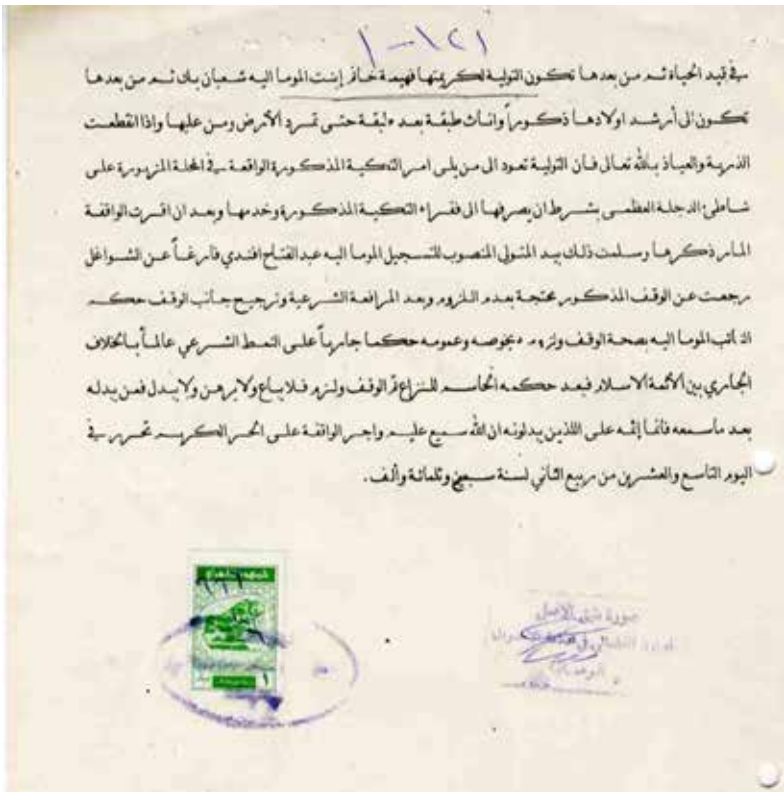 ١٢١ - ١
في قيد الحياة ثم من بعدها تكون التولية لكريمتها فهيمة خانم إبنت الموما اليه شعبان بك ثم من بعدها
تكون الى أرشد اولادها ذكوراً واناث طبقة بعد طبقة حتى تمرد الأرض ومن عليها واذا انقطعت
الذرية والعياذ بالله تعالى فأن التولية تعود الى من يلى امر التكية المذكورة الواقعة في المحلة المزبورة على
شاطئ الدجلة العظمى بشرط ان يصرفها الى فقراء التكية المذكورة وخدمها وبعد ان اقرت الواقفة
المار ذكرها وسلمت ذلك بيد المتولى المنصوب للتسجيل الموما اليه عبد الفتاح افندي فارغاً عن الشواغل
رجعت عن الوقف المذكور محتجة بعدم اللزوم وبعد المرافعة الشرعية وترجيح جانب الوقف حكم
النائب الموما اليه بصحة الوقف ولزومه بخوصه وعمومه حكما جارياً على النمط الشرعي عالماً بالخلاف
الجاري بين الأئمة الاسلام فبعد حكمه الحاسم للنزاع تم الوقف ولزم فلا يباع ولا يرهن ولا يبدل فمن بدله
بعد ماسمعه فانما إثمه على اللذين يبدلونه ان الله سميع عليم واجر الواقفة على الحي الكريم تحرير في
اليوم التاسع والعشرين من ربيع الثاني لسنة سبعين وثلمائة وألف .
صورة طبق الاصل
١